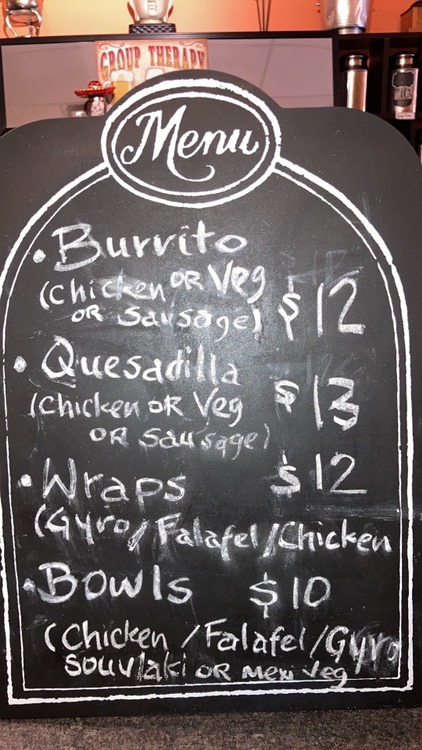 GROUP THERAPY
Menu
• Burrito
(Chicken OR Veg
OR Sausage) $12
• Quesadilla
(Chicken OR Veg $13
OR Sausage)
• Wraps $12
(Gyro/Falafel/Chicken
• Bowls $10
(Chicken/Falafel/Gyro
Souvlaki OR Mexi Veg